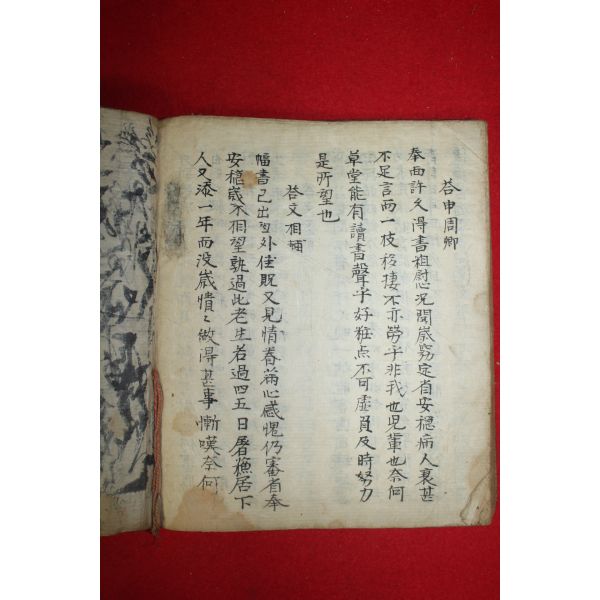 答申周卿
奉面許久得書粗慰況聞歲窮定省安穩病人衰甚
不足言兩一枝移棲不亦勞乎非我也兒輩也奈何
草堂能有讀書聲乎好粧点不可虛負及時努力
是所望也
答文相輔
幅書已出外佳貺又見情眷荷心感愧仍審省奉
安穩歲不相望孰過此老生若過四五日屠漁居下
人又添一年而沒歲憒〻做得甚事慚嘆奈何